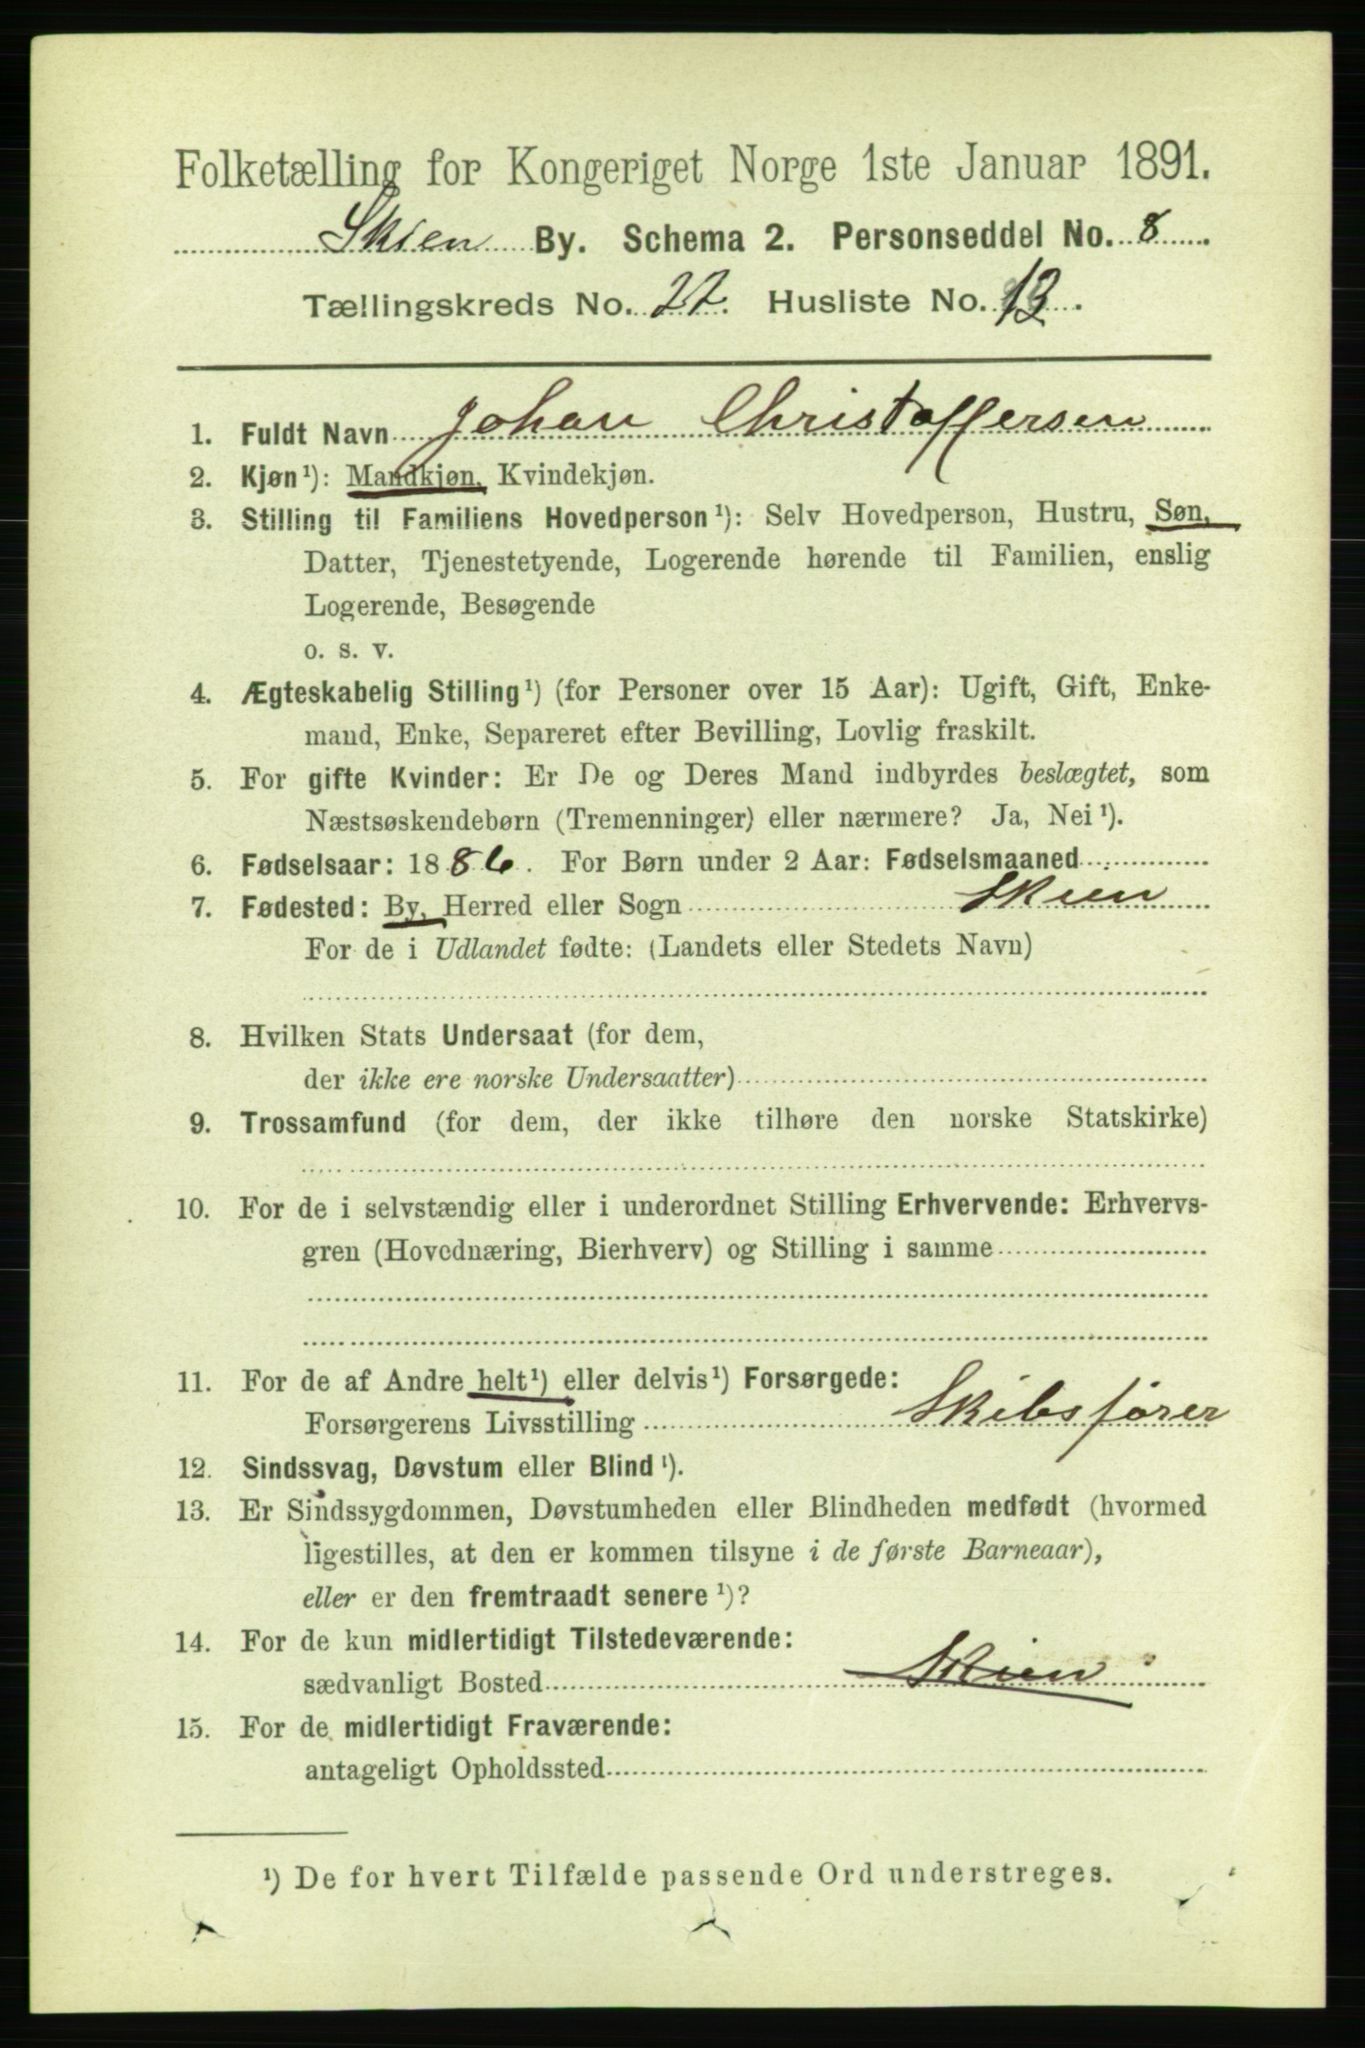 Folketælling for Kongeriget Norge 1ste Januar 1891.
Skien By. Schema 2. Personseddel No. 8
Tællingskreds No. 22. Husliste No. 13.
1. Fuldt Navn Johan Christoffersen
2. Kjøn¹): Mandkjøn, Kvindekjøn.
3. Stilling til Familiens Hovedperson¹): Selv Hovedperson, Hustru, Søn,
Datter, Tjenestetyende, Logerende hørende til Familien, enslig
Logerende, Besøgende
o. s. v.
4. Ægteskabelig Stilling¹) (for Personer over 15 Aar): Ugift, Gift, Enke-
mand, Enke, Separeret efter Bevilling, Lovlig fraskilt.
5. For gifte Kvinder: Er De og Deres Mand indbyrdes beslægtet, som
Næstsøskendebørn (Tremenninger) eller nærmere? Ja, Nei¹).
6. Fødselsaar: 1886. For Børn under 2 Aar: Fødselsmaaned
7. Fødested: By, Herred eller Sogn Skien
For de i Udlandet fødte: (Landets eller Stedets Navn)
8. Hvilken Stats Undersaat (for dem,
der ikke ere norske Undersaatter)
9. Trossamfund (for dem, der ikke tilhøre den norske Statskirke)
10. For de i selvstændig eller i underordnet Stilling Erhvervende: Erhvervs-
gren (Hovednæring, Bierhverv) og Stilling i samme
11. For de af Andre helt¹) eller delvis¹) Forsørgede:
Forsørgerens Livsstilling Skibsfører
12. Sindssvag, Døvstum eller Blind¹).
13. Er Sindssygdommen, Døvstumheden eller Blindheden medfødt (hvormed
ligestilles, at den er kommen tilsyne i de første Barneaar),
eller er den fremtraadt senere¹)?
14. For de kun midlertidigt Tilstedeværende:
sædvanligt Bosted Skien
15. For de midlertidigt Fraværende:
antageligt Opholdssted
¹) De for hvert Tilfælde passende Ord understreges.